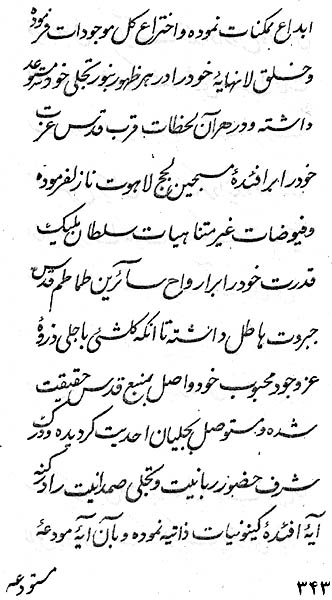 ابداع ممکنات نموده و اختراع کل موجودات فرموده
و خلق لانهایهٔ خود را در هر ظهور بنور تجلی خود مستوعد
داشته و در هر آن لحظات قرب قدس عزت
خود را بر افئدهٔ مسبحین لجج لاهوت نازل فرموده
و فیوضات غیر متناهیات سلطان ملیک
قدرت خود را بر ارواح سائرین طماطم قدس
جبروت هاطل داشته تا آنکه کلشیٔ باجلی ذروهٔ
عز وجود محبوب خود واصل بمنبع قدس حقیقت
شده و مستوصل بجلیان احدیت گردیده و درک
شرف حضور ربانیت و تجلی صمدانیت را در کنه
آیهٔ افئدهٔ کینونیات ذاتیه نموده و بآن آیهٔ مودعهٔ
مستودعه
۳۴۳